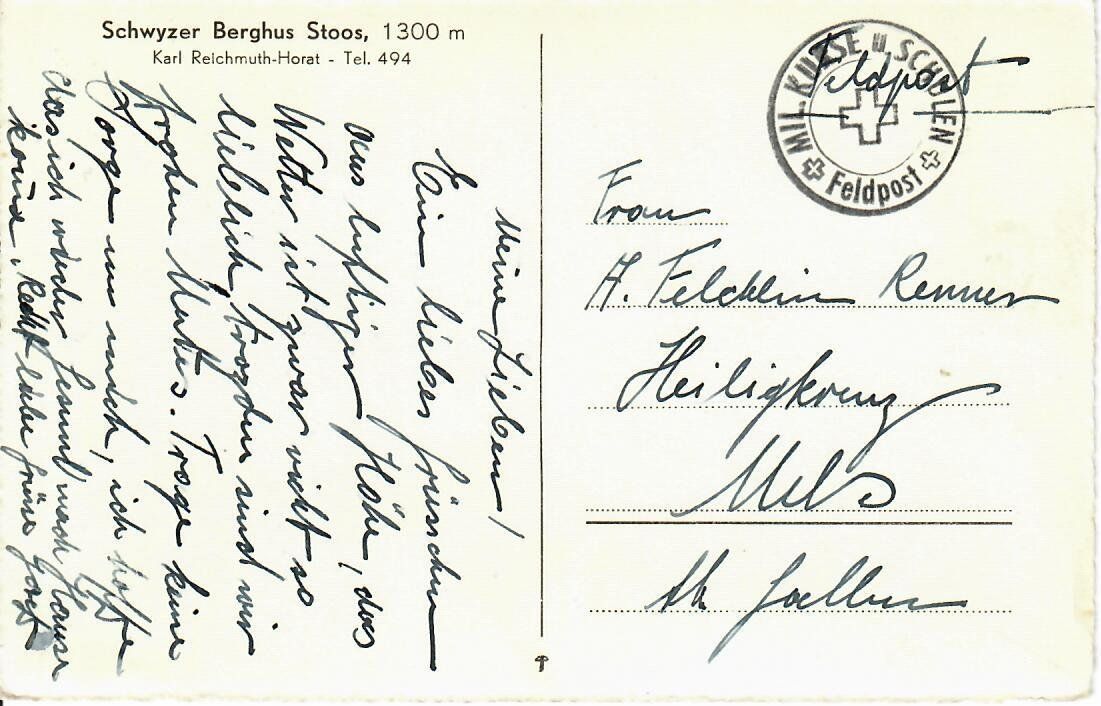 Schwyzer Berghus Stoos, 1300 m
Karl Reichmuth-Horat - Tel. 494
Meine Lieben!
Ein liebes Grüsschen
aus luftiger Höhe, das
Wetter ist zwar nicht so
lieblich, trozdem sind wir
frohen Mutes. Trage keine
Sorge um mich, ich hoffe
das ich wieder Gesund nach Hause
komme. Recht liebe Grüsse
MIL. KURSE U. SCHULEN
Feldpost
Feldpost
Frau
A. Feldklin Renner
Heiligkreuz
Mels
St. Gallen